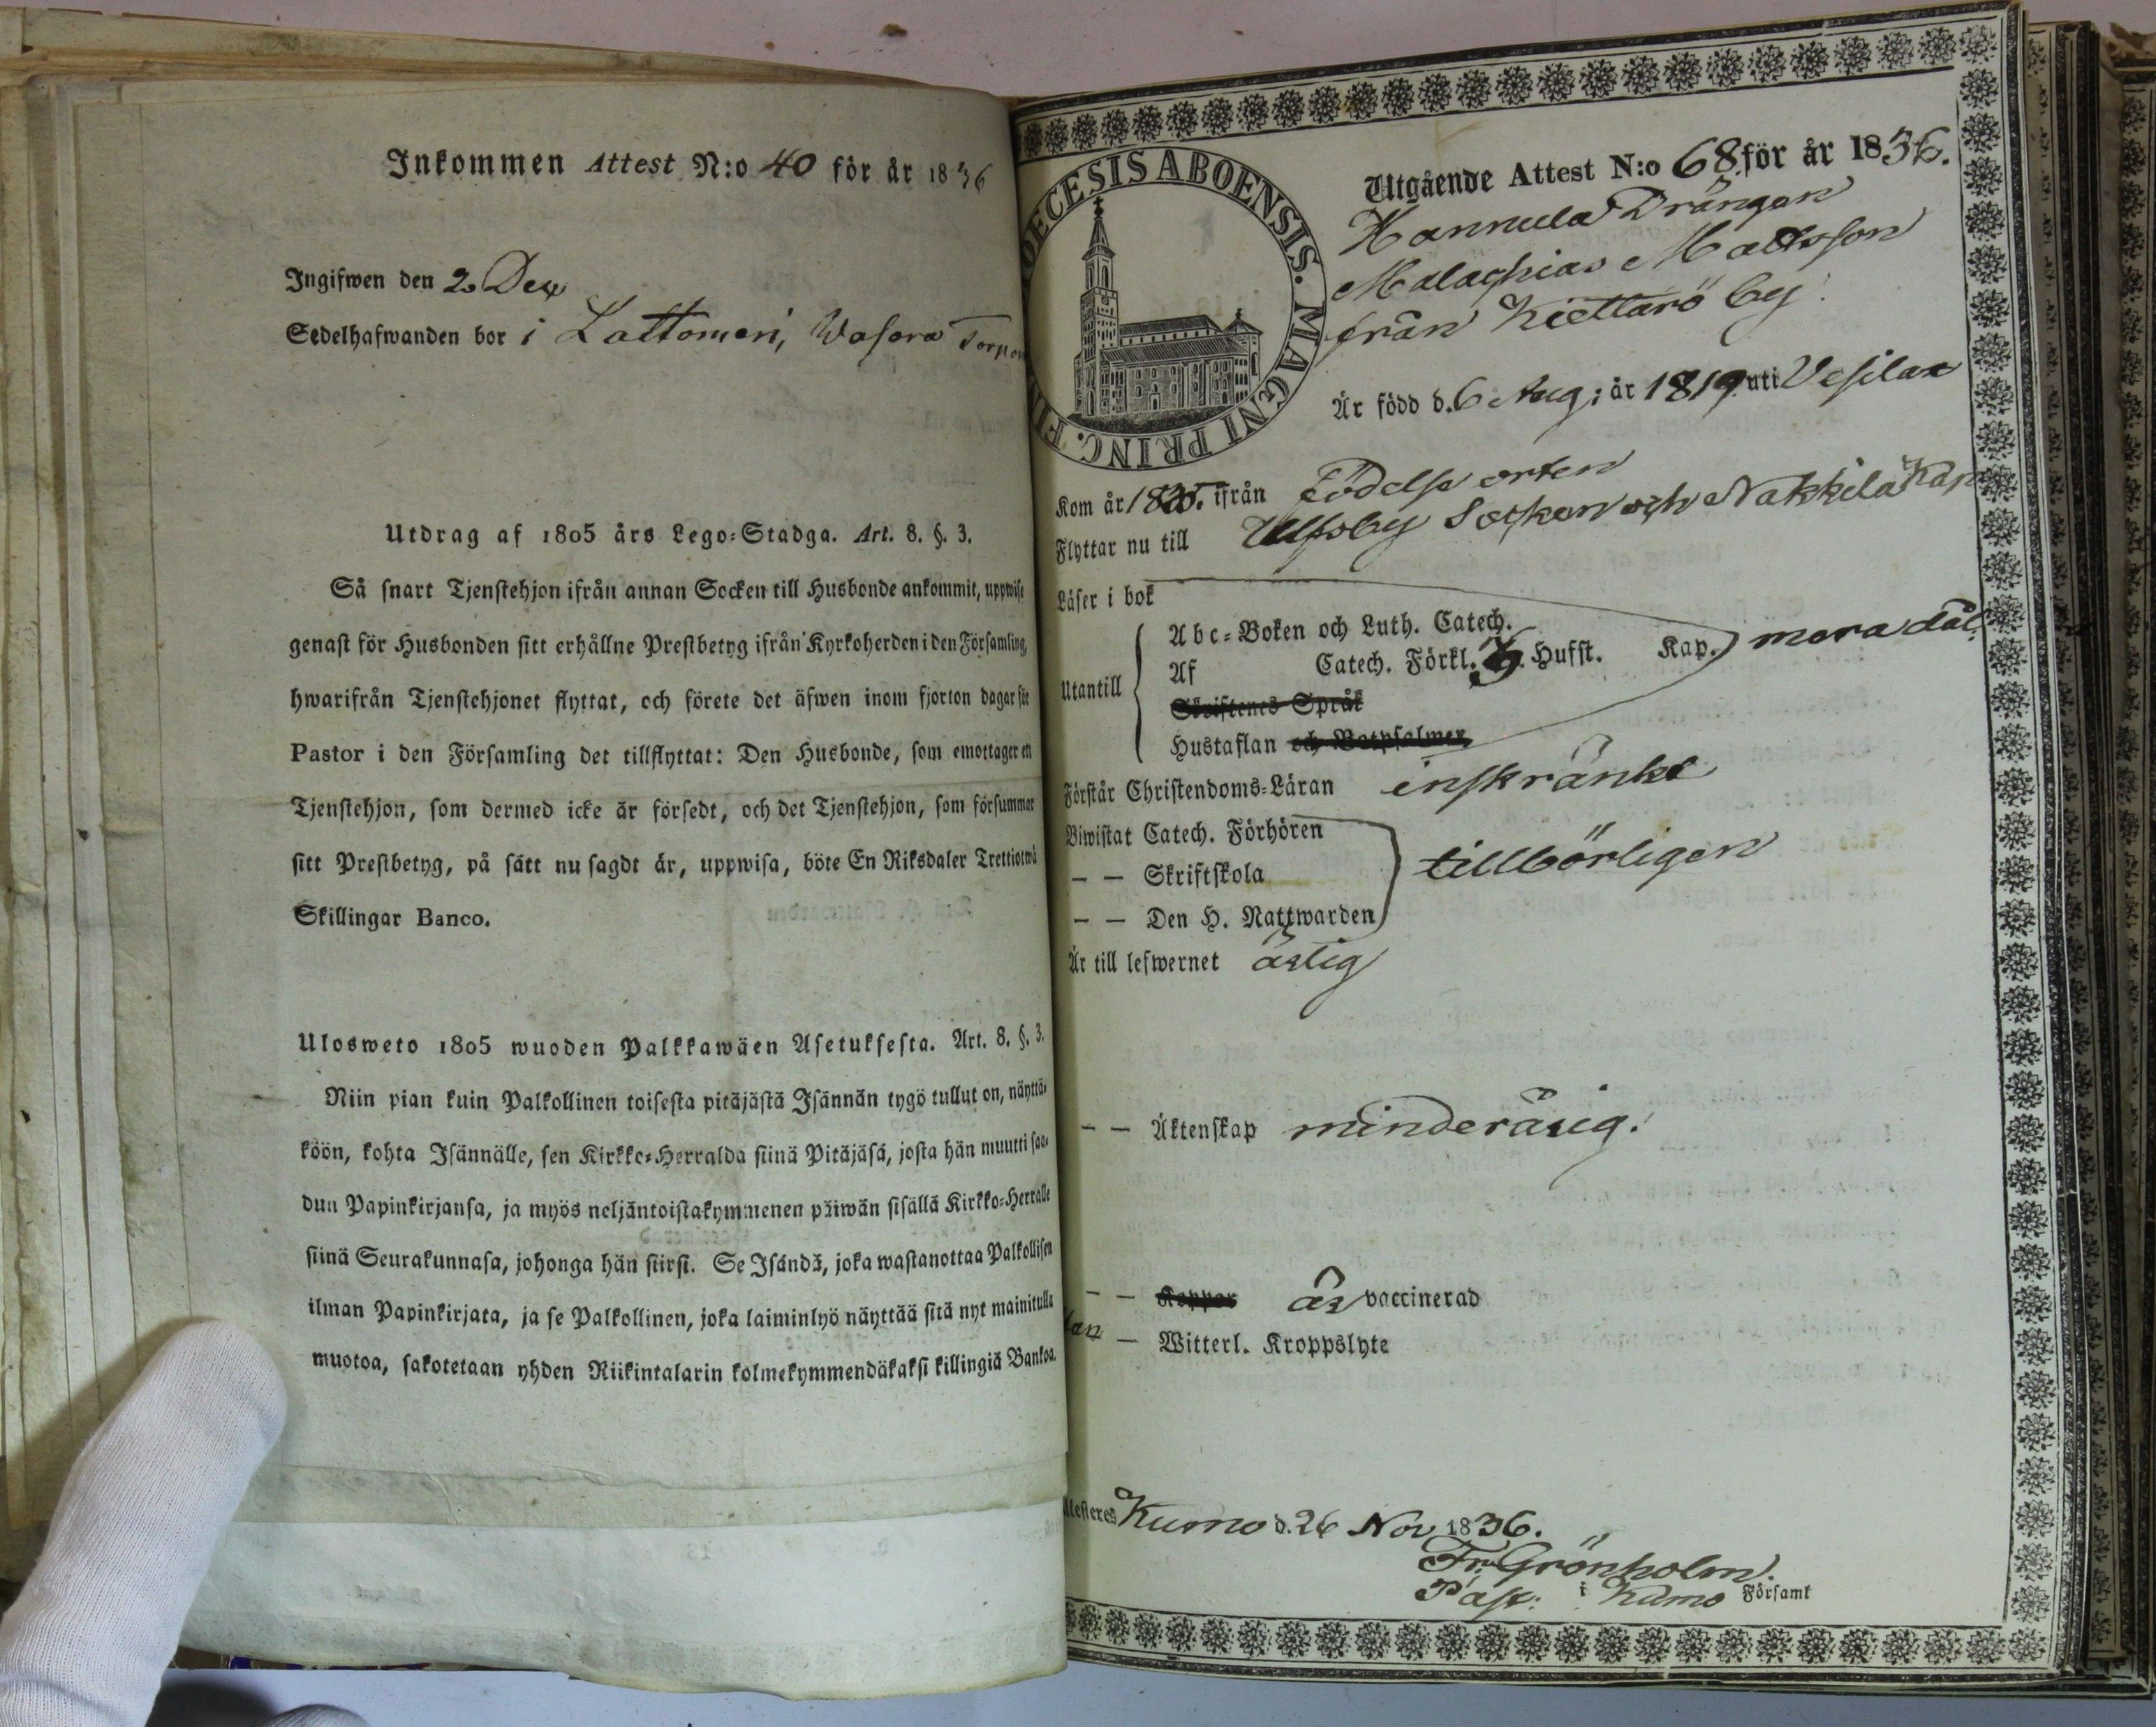 Inkommen Attest N:o 40 för år 1836
Ingifwen den 2 Dec
Sedelhafwanden bor i Lattomeri, Wasara Torpare
Utdrag af 1805 års Lego-Stadga. Art. 8. §. 3.
Så snart Tjenstehjon ifrån annan Socken till Husbonde ankommit, uppwise
genast för Husbonden sitt erhållne Prestbetyg ifrån Kyrkoherden i den Församling,
hwarifrån Tjenstehjonet flyttat, och förete det äfwen inom fjorton dagar för
Pastor i den Församling det tillflyttat: Den Husbonde, som emottager ett
Tjenstehjon, som dermed icke är försedt, och det Tjenstehjon, som försummar
sitt Prestbetyg, på sätt nu sagdt är, uppwisa, böte En Riksdaler Trettiotwå
Skillingar Banco.
Ulosweto 1805 wuoden Palkkawäen Asetuksesta. Art. 8. §. 3.
Niin pian kuin Palkollinen toisesta pitäjästä Isännän tygö tullut on, näyttä-
köön, kohta Isännälle, sen Kirkko-Herralda siinä Pitäjäsä, josta hän muutti saa-
dun Papinkirjansa, ja myös neljäntoistakymmenen päiwän sisällä Kirkko-Herralle
siinä Seurakunnasa, johonga hän siirsi. Se Isändä, joka wastanottaa Palkollisen
ilman Papinkirjata, ja se Palkollinen, joka laiminlyö näyttää sitä nyt mainitulla
muotoa, sakotetaan yhden Riikintalarin kolmekymmendäkaksi killingiä Bankoa.
DIOECESIS ABOENSIS. MAGNI PRINC. FIN
Utgående Attest N:o 68 för år 1836.
Hannula Drängen
Malachias Mattsson
från Kiettarö by
Är född d. 6 Aug; år 1819 uti Vesilax
Kom år ifrån Födelse orten
Flyttar nu till Ulfsby Socken och Nakkila Kap
Läser i bok
Utantill
Abc-Boken och Luth. Catech.
Af Catech. Förkl. 3. Hufst. Kap. mera dål.
Skriftenes Språk
Hustaflan och Botpsalmer
Förstår Christendoms-Läran inskränkt
Biwistat Catech. Förhören
— — Skriftskola tillbörligen
— — Den H. Nattwarden
Är till lefwernet ärlig
— — Äktenskap minderårig.
— — Koppor är vaccinerad
utan — Witterl. Kroppslyte
Attesteres Kumo d. 26 Nov 1836.
Fr. Grönholm.
Past: i Kumo Församl